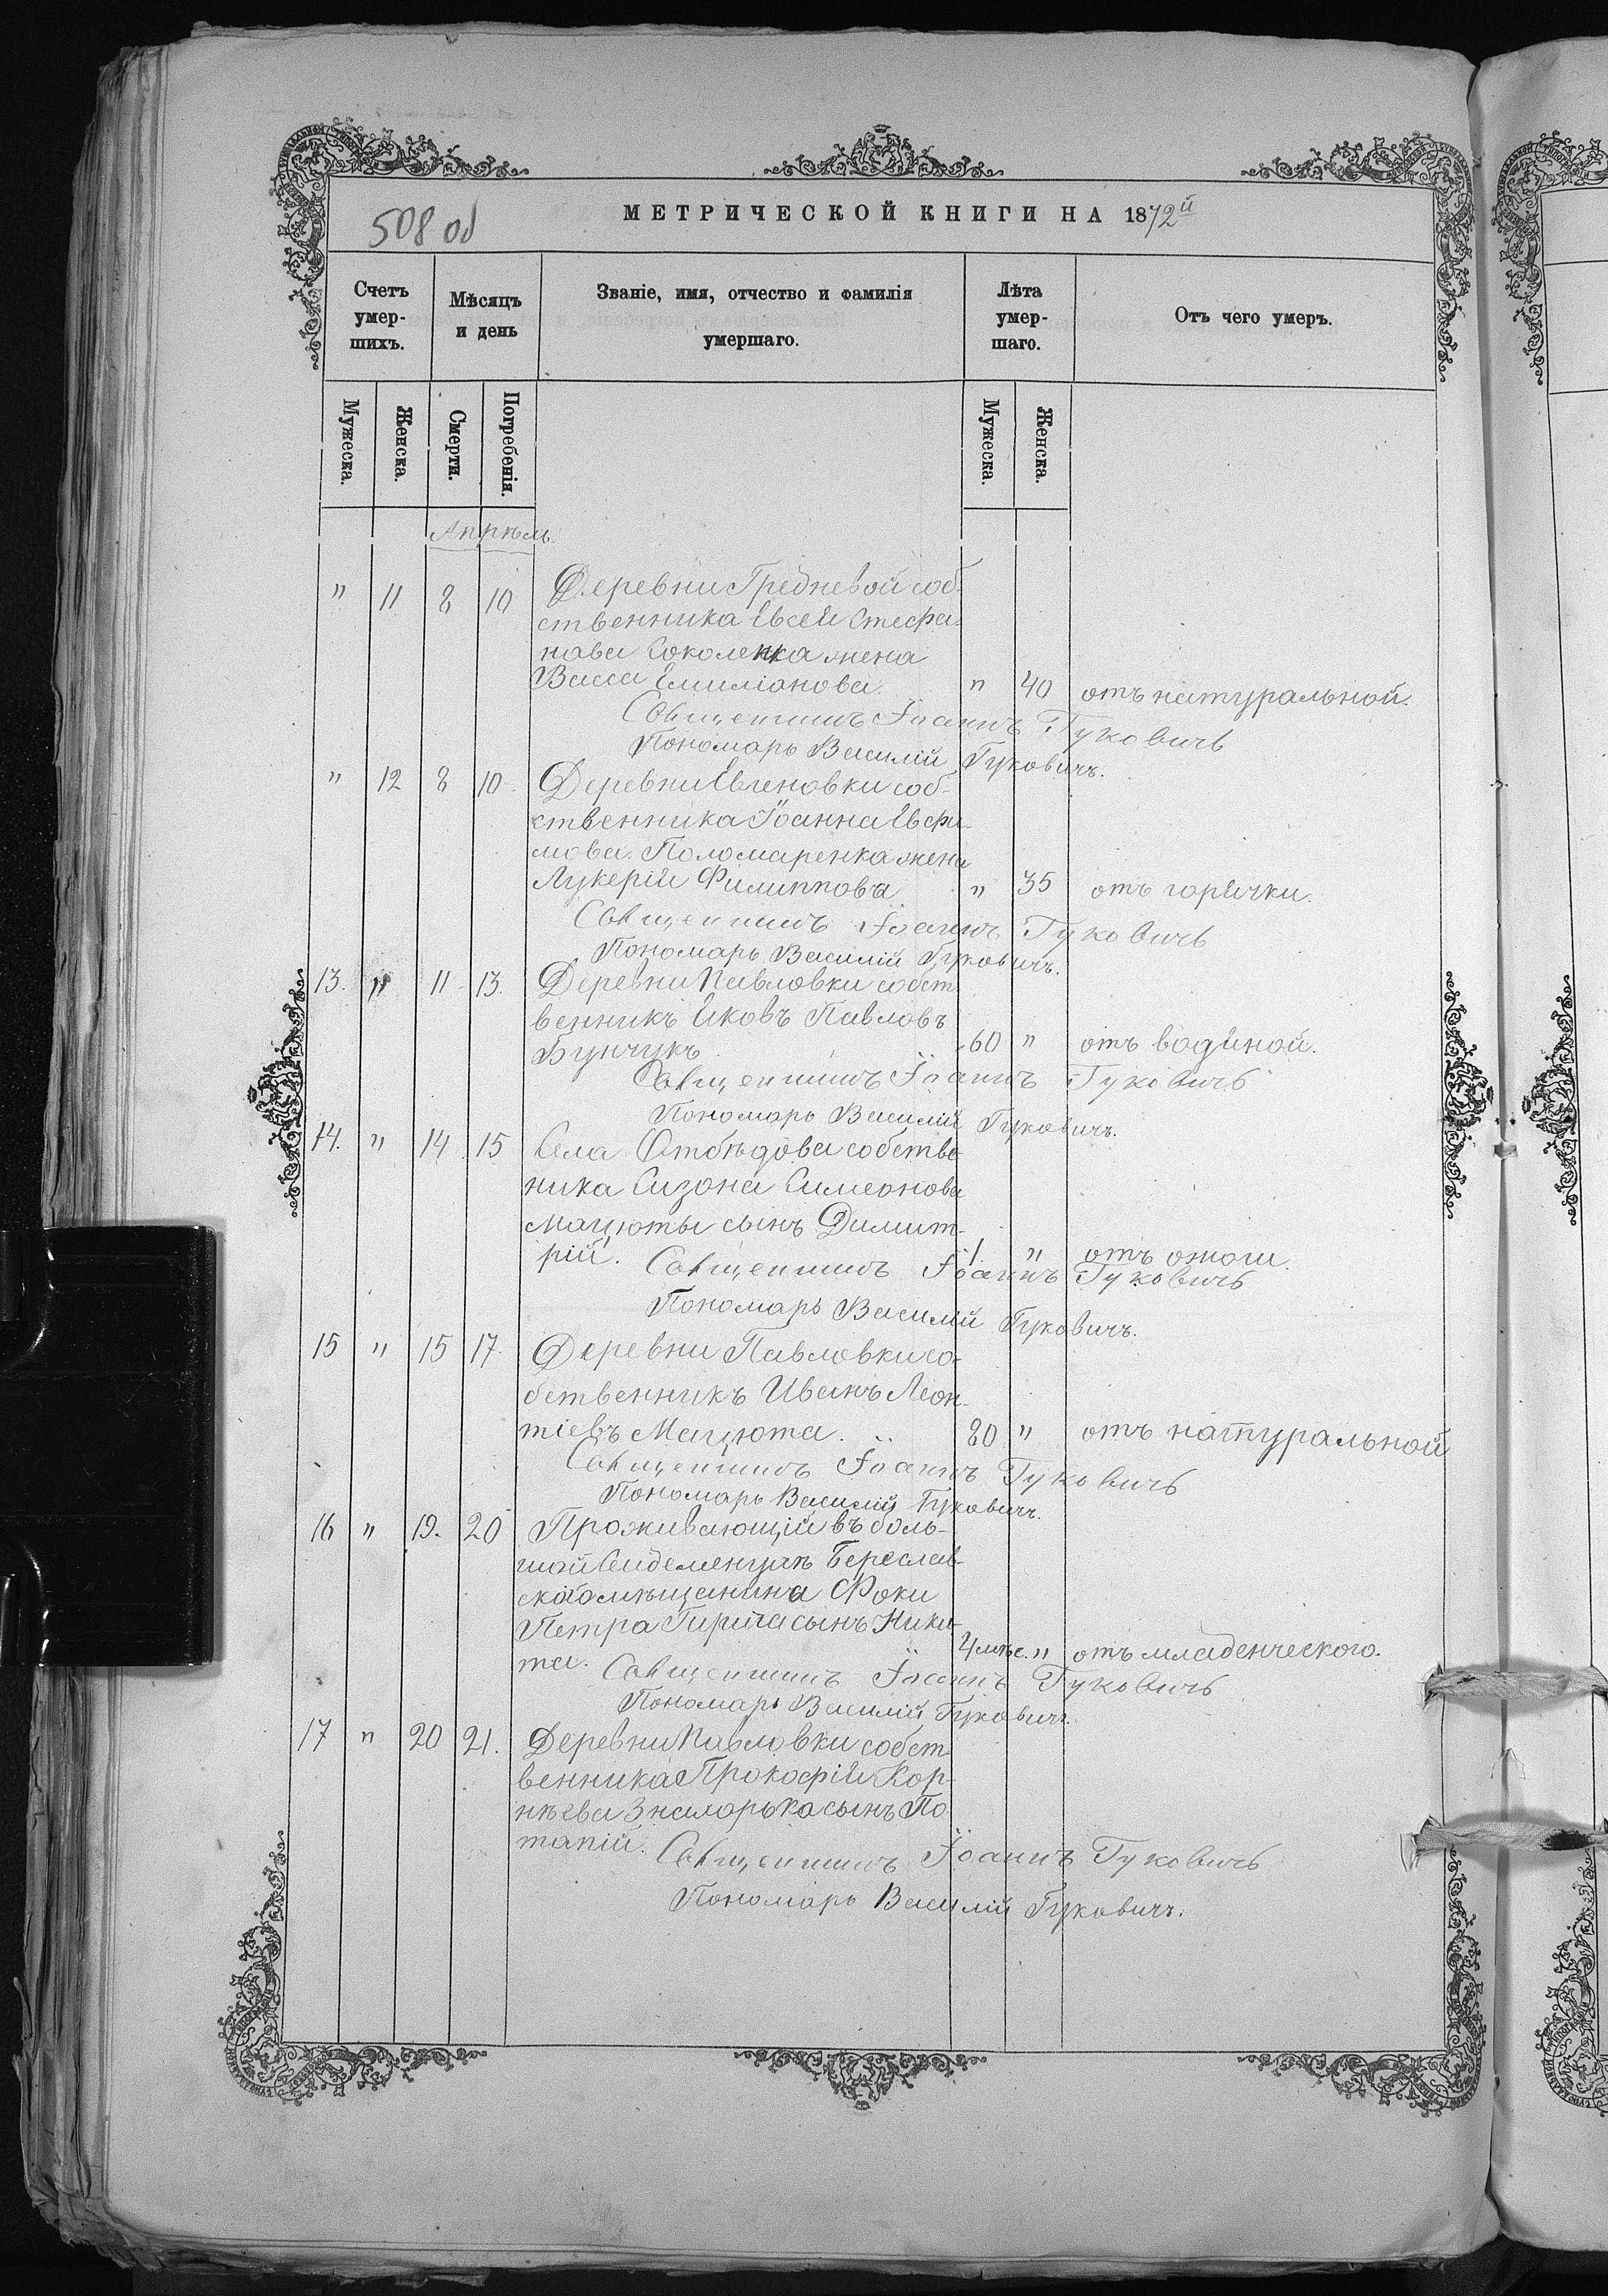 508 об
МЕТРИЧЕСКОЙ КНИГИ НА 1872й
Счетъ умер-шихъ.
Мѣсяцъ и день
Званіе, имя, отчество и фамилія умершаго.
Лѣта умер-шаго.
Отъ чего умеръ.
Мужеска.
Женска.
Смерти.
Погребенія.
Мужеска.
Женска.
Апрѣль.
" 11 8 10 Деревни Гредневой соб-
ственника Евсея Стефа-
нова Соколенка жена
Васса Емиліанова. " 40 отъ натуральной.
Священникъ Іоаннъ Гуковичъ
Пономарь Василій Гуковичъ.
" 12 8 10 Деревни Евгеновки соб-
ственника Іоанна Евфи-
мова Поломаренка жена
Лукерія Филиппова " 35 отъ горячки.
Священникъ Іоаннъ Гуковичъ
Пономарь Василій Гуковичъ.
13. " 11 13. Деревни Павловки собст-
венникъ Яковъ Павловъ
Бунчукъ 60 " отъ водяной.
Священникъ Іоаннъ Гуковичъ
Пономарь Василій Гуковичъ.
14. " 14 15 Села Отбѣдова собстве-
ника Сизона Симеонова
Мацюты сынъ Димит-
рій. 1. " отъ
Священникъ Іоаннъ Гуковичъ
Пономарь Василій Гуковичъ.
15 " 15 17. Деревни Павловки со-
бственникъ Иванъ Леон-
тіевъ Мацюта. 80 " отъ натуральной
Священникъ Іоаннъ Гуковичъ
Пономарь Василій Гуковичъ.
16 " 19. 20 Проживающій въ боль-
шой Сейдеменухѣ Береслав-
скаго мѣщанина Фоки
Петра сынъ Ники-
та. 4 мѣс. " отъ младенческого.
Священникъ Іоаннъ Гуковичъ
Пономарь Василій Гуковичъ.
17 " 20 21. Деревни Павловки собст-
венника Прокофія Кор-
нѣева Знаморька сынъ По-
тапій.
Священникъ Іоаннъ Гуковичъ
Пономарь Василій Гуковичъ.